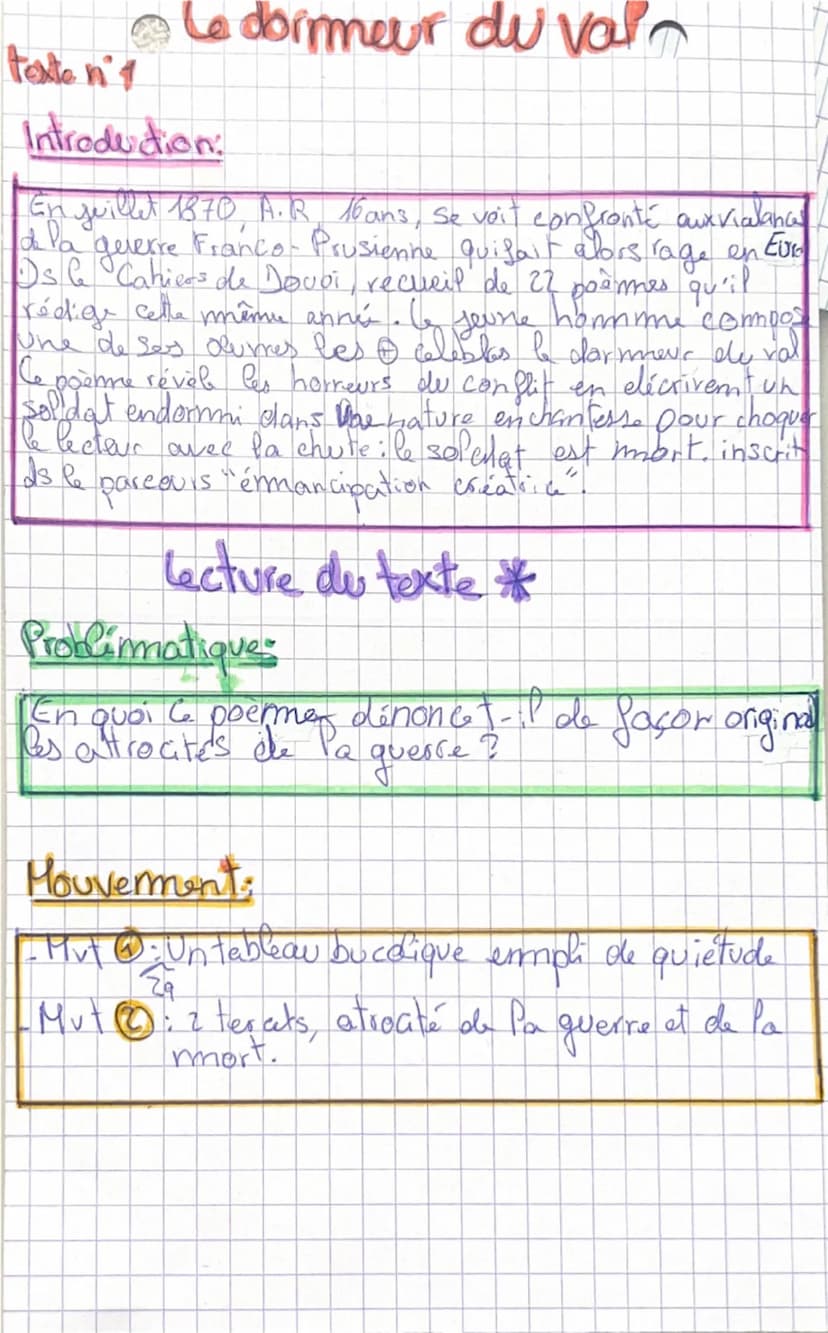 Le dormeur du val
texte n°1
Introduction:
En juillet 1870, A.R, 16 ans, se voit confronté aux violances
de la guerre Franco-Prusienne qui fait alors rage en Euro
Ds le "Cahiers de Douai, recueil de 22 poèmes qu'il
rédige cette même année. Le jeune homme compos
une de ses œuvres les ⊕ célèbres le dormeur du val
Ce poème révèle les horreurs du conflit en décrivent un
soldat endormi dans une nature enchantesse pour choquer
le lecteur avec la chute : le soldat est mort. inscrit
ds le parcours "émancipation créatrice".
Lecture du texte *
Problématique:
En quoi ce poème dénonce t-il de façon original
les attrocités de la guerre ?
Mouvement:
- Mvt ① : Un tableau bucolique empli de quiétude
2q
- Mvt ② : 2 tercets, atrocité de la guerre et de la
mort.